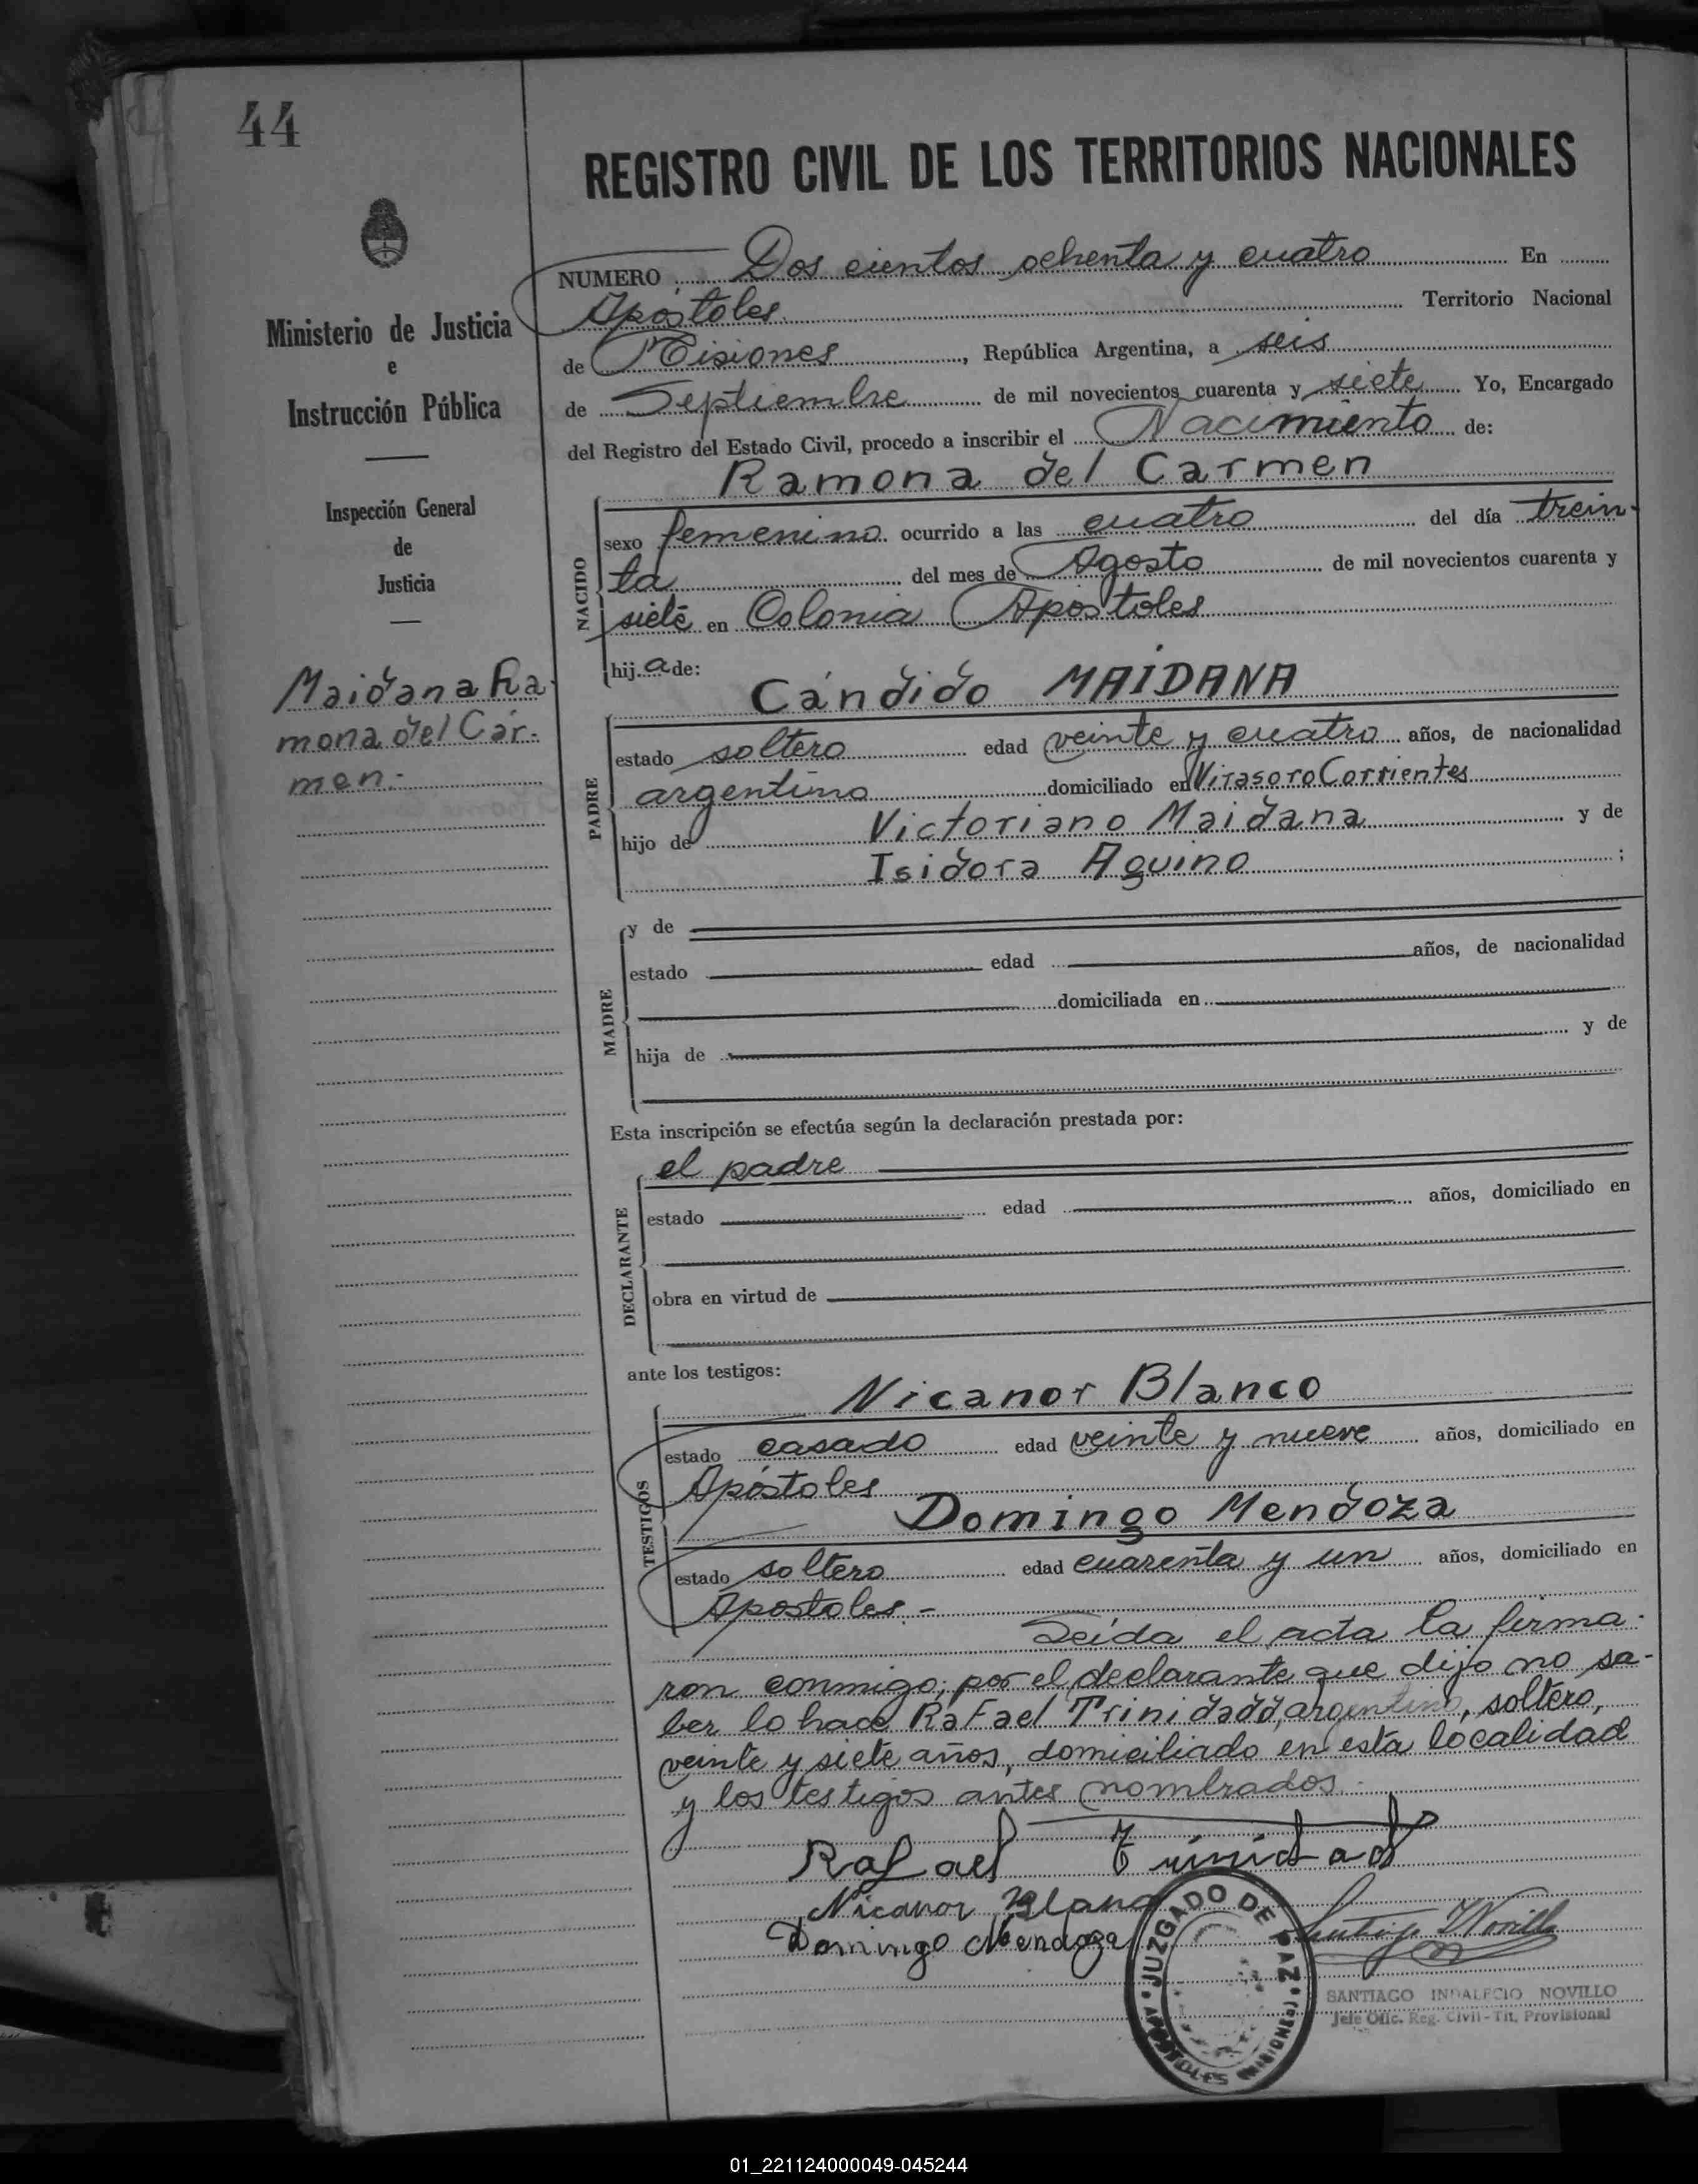 44
REGISTRO CIVIL DE LOS TERRITORIOS NACIONALES
Ministerio de Justicia
e
Instrucción Pública
Inspección General
de
Justicia
Maidana Ra-
mona del Cár-
men.-
NUMERO Dos cientos ochenta y cuatro En
Apóstoles Territorio Nacional
de Misiones, República Argentina, a seis
de Septiembre de mil novecientos cuarenta y siete Yo, Encargado
del Registro del Estado Civil, procedo a inscribir el Nacimiento de:
Ramona del Carmen
NACIDO
sexo femenino ocurrido a las cuatro del día trein-
ta del mes de Agosto de mil novecientos cuarenta y
siete en Colonia Apóstoles
hija de:
Cándido MAIDANA
PADRE
estado soltero edad veinte y cuatro años, de nacionalidad
argentino domiciliado en Virasoro Corrientes
hijo de Victoriano Maidana y de
Isidora Aquino ;
MADRE
y de
estado edad años, de nacionalidad
domiciliada en
hija de y de
Esta inscripción se efectúa según la declaración prestada por:
DECLARANTE
el padre
estado edad años, domiciliado en
obra en virtud de
ante los testigos:
TESTIGOS
Nicanor Blanco
estado casado edad veinte y nueve años, domiciliado en
Apóstoles
Domingo Mendoza
estado soltero edad cuarenta y un años, domiciliado en
Apostoles.-
Leída el acta la firma-
ron conmigo; por el declarante que dijo no sa-
ber lo hace Rafael Trinidadd, argentino, soltero,
veinte y siete años, domiciliado en esta localidad
y los testigos antes nombrados.
Rafael Trinidad
Nicanor Blanco
Domingo Mendoza
JUZGADO DE PAZ
APOSTOLES (MISIONES)
SANTIAGO INDALECIO NOVILLO
Jefe Ofic. Reg. Civil - Tit. Provisional
01_221124000049-045244